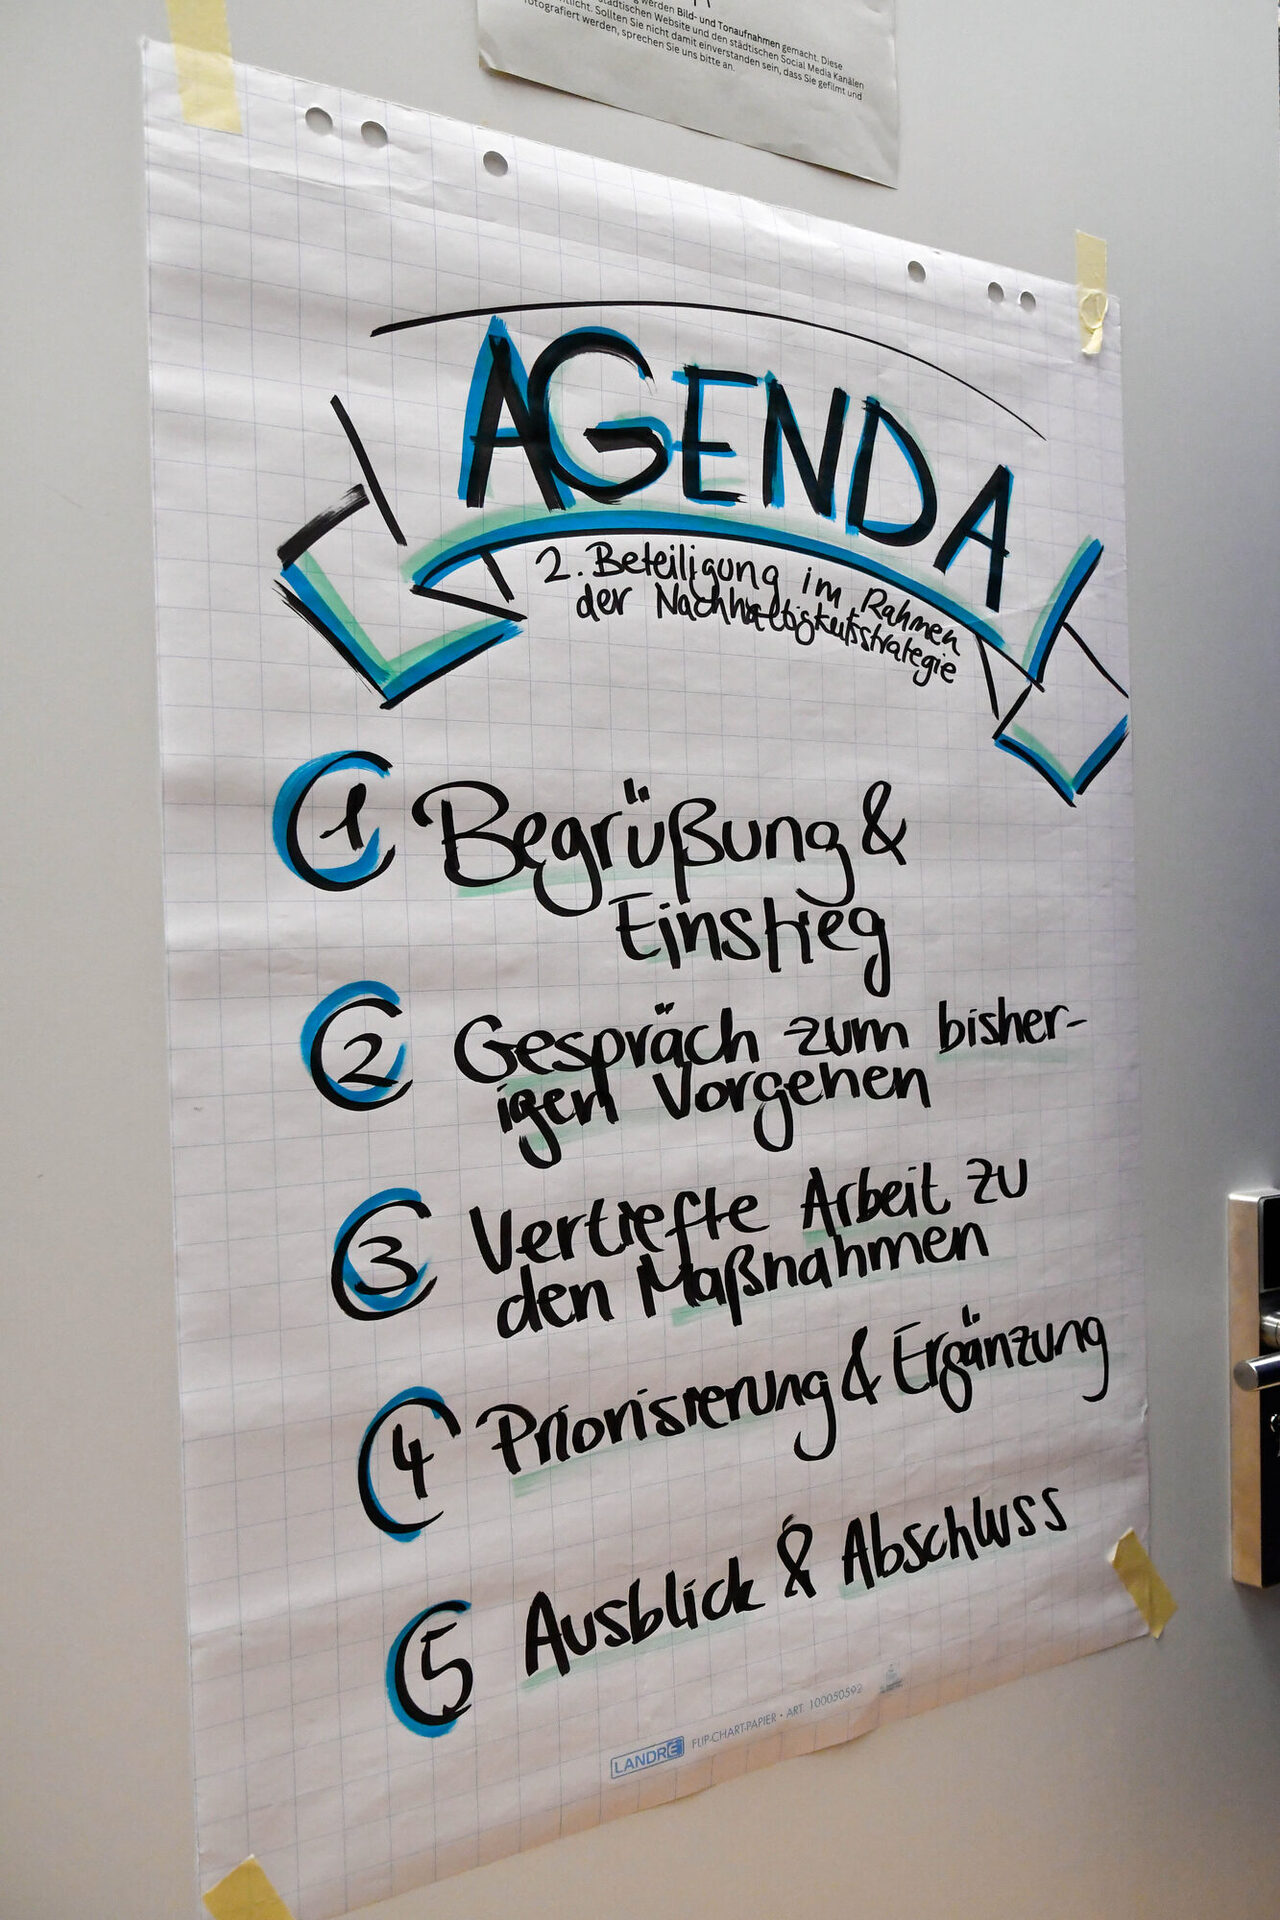 werden Bild- und Tonaufnahmen gemacht. Diese
städtischen Website und den städtischen Social Media Kanälen
Sollten Sie nicht damit einverstanden sein, dass Sie gefilmt und
fotografiert werden, sprechen Sie uns bitte an.
AGENDA
2. Beteiligung im Rahmen
der Nachhaltigkeitsstrategie
1 Begrüßung &
Einstieg
2 Gespräch zum bisher-
igen Vorgehen
3 Vertiefte Arbeit zu
den Maßnahmen
4 Priorisierung & Ergänzung
5 Ausblick & Abschluss
LANDRÉ FLIP-CHART-PAPIER • ART. 100050592